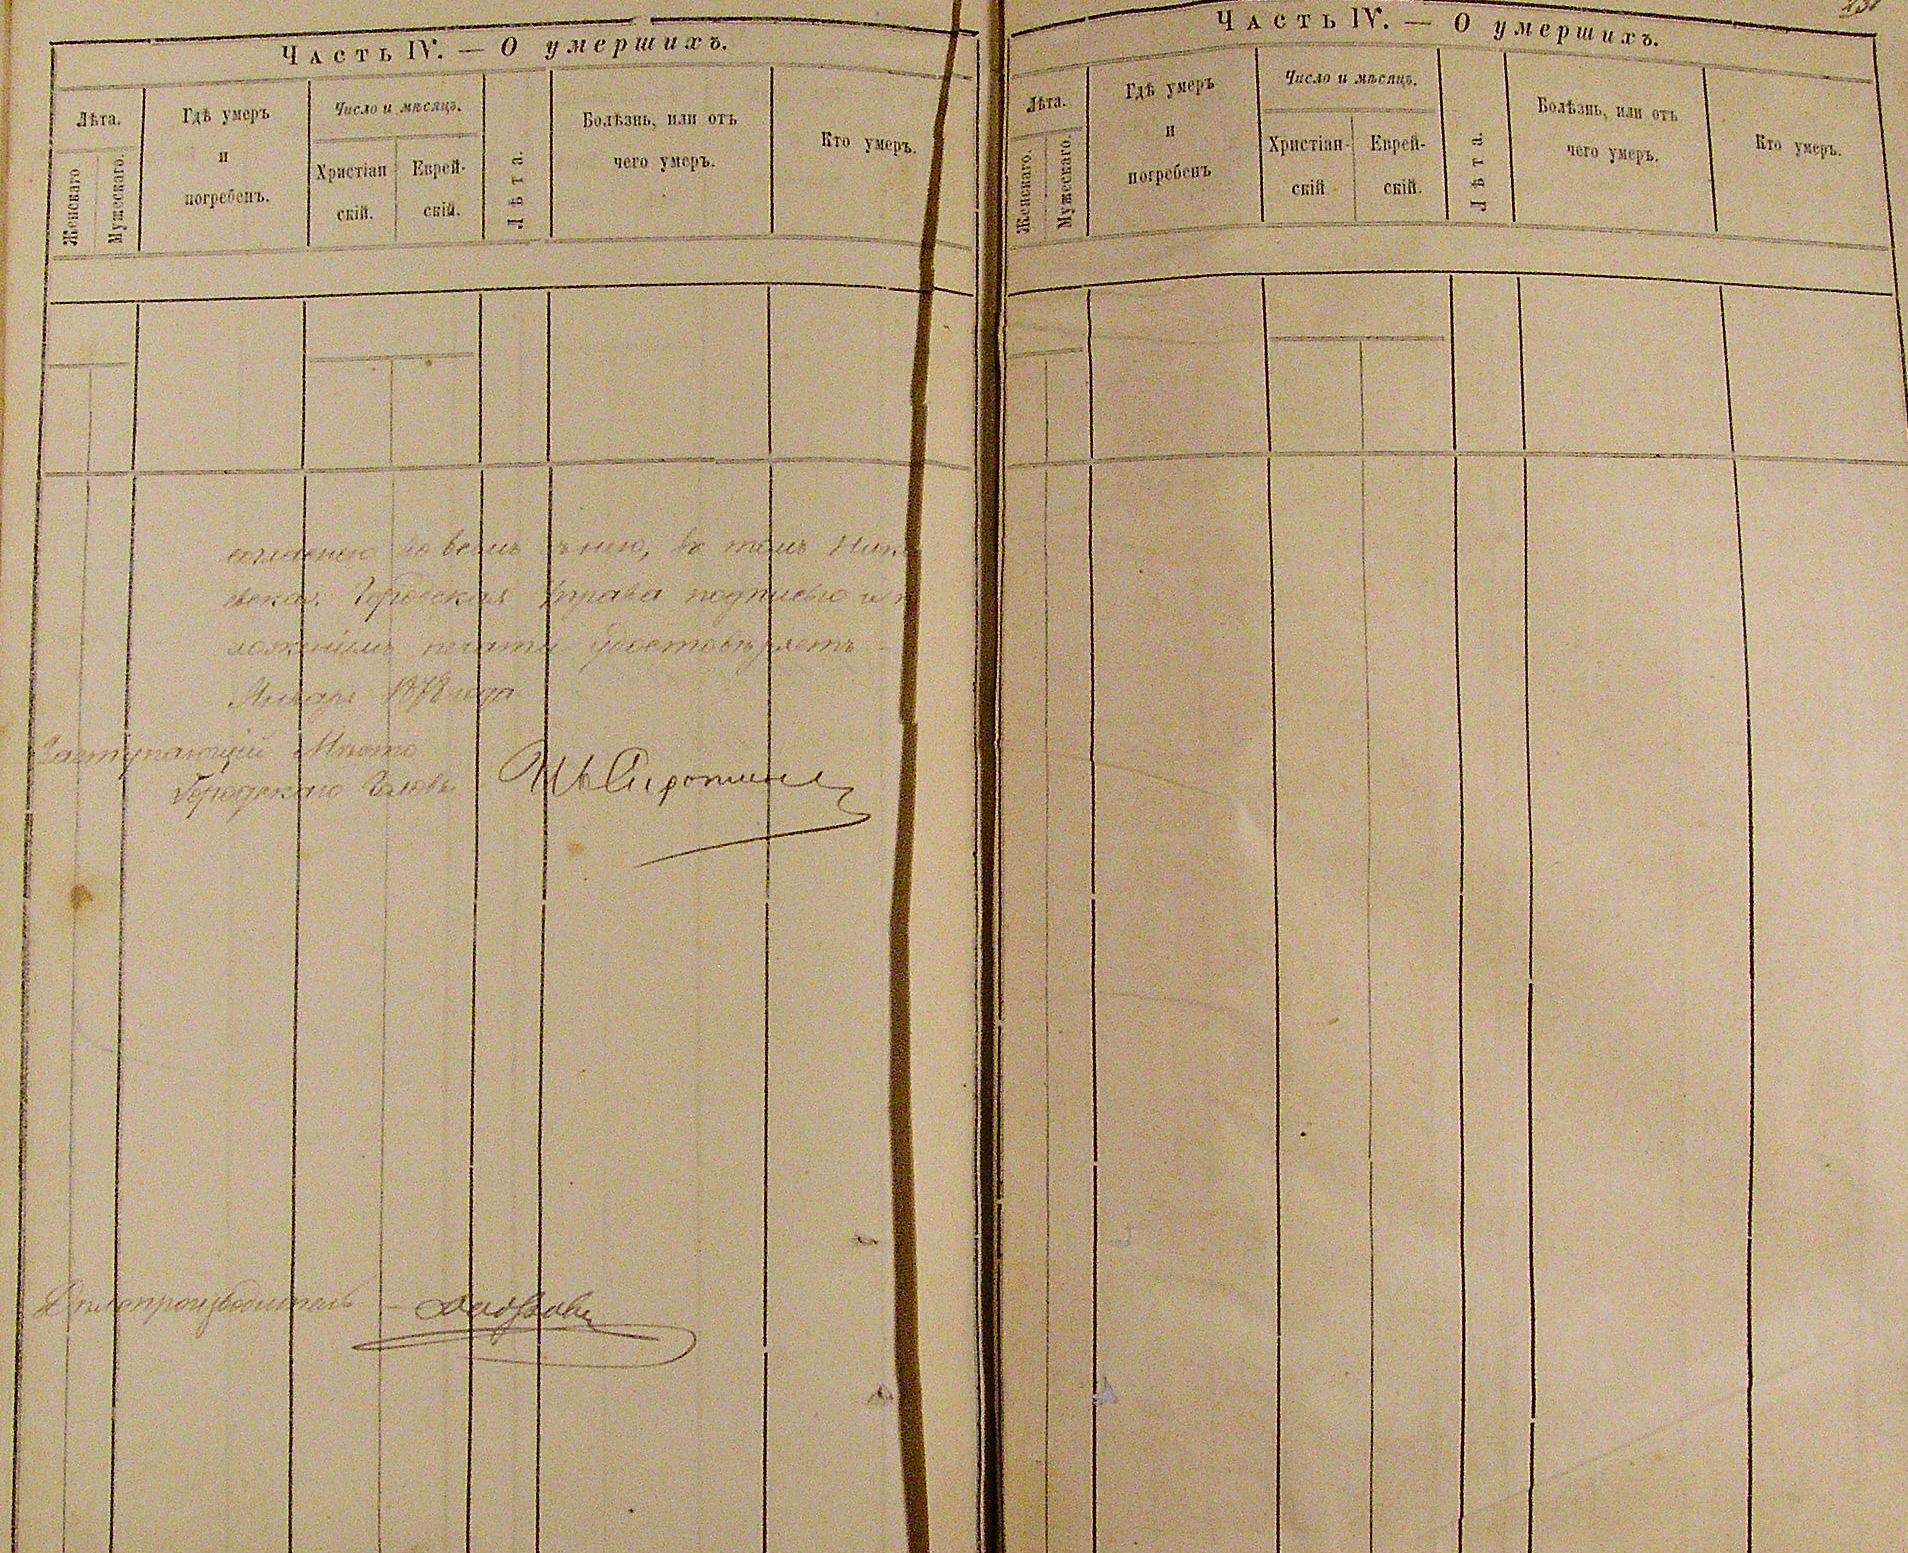 Часть IV. — О умершихъ.
Лѣта.
Женскаго
Мужескаго.
Гдѣ умеръ
и
погребенъ.
Число и мѣсяцъ.
Христіан
скій.
Еврей-
скій.
Лѣта.
Болѣзнь, или отъ
чего умеръ.
Кто умеръ.
во всемъ въ томъ
Городская Управа подписью и
ложеніемъ печати удостовѣряетъ
Января 1878 года
Заступающій Мѣсто
Городскаго Головы
Дѣлопроизводитель
Часть IV. — О умершихъ.
Лѣта.
Женскаго.
Мужескаго.
Гдѣ умеръ
и
погребенъ
Число и мѣсяцъ.
Христіан-
скій
Еврей-
скій.
Лѣта.
Болѣзнь, или отъ
чего умеръ.
Кто умеръ.